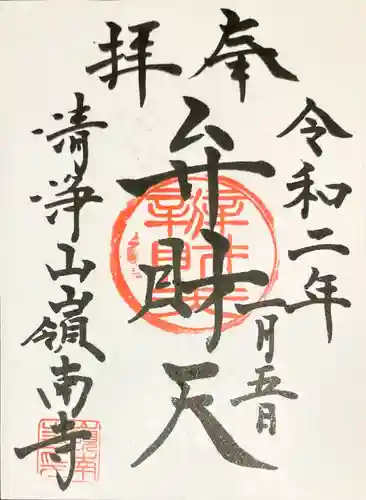 奉拝
令和二年一月五日
弁財天
清浄山嶺南寺